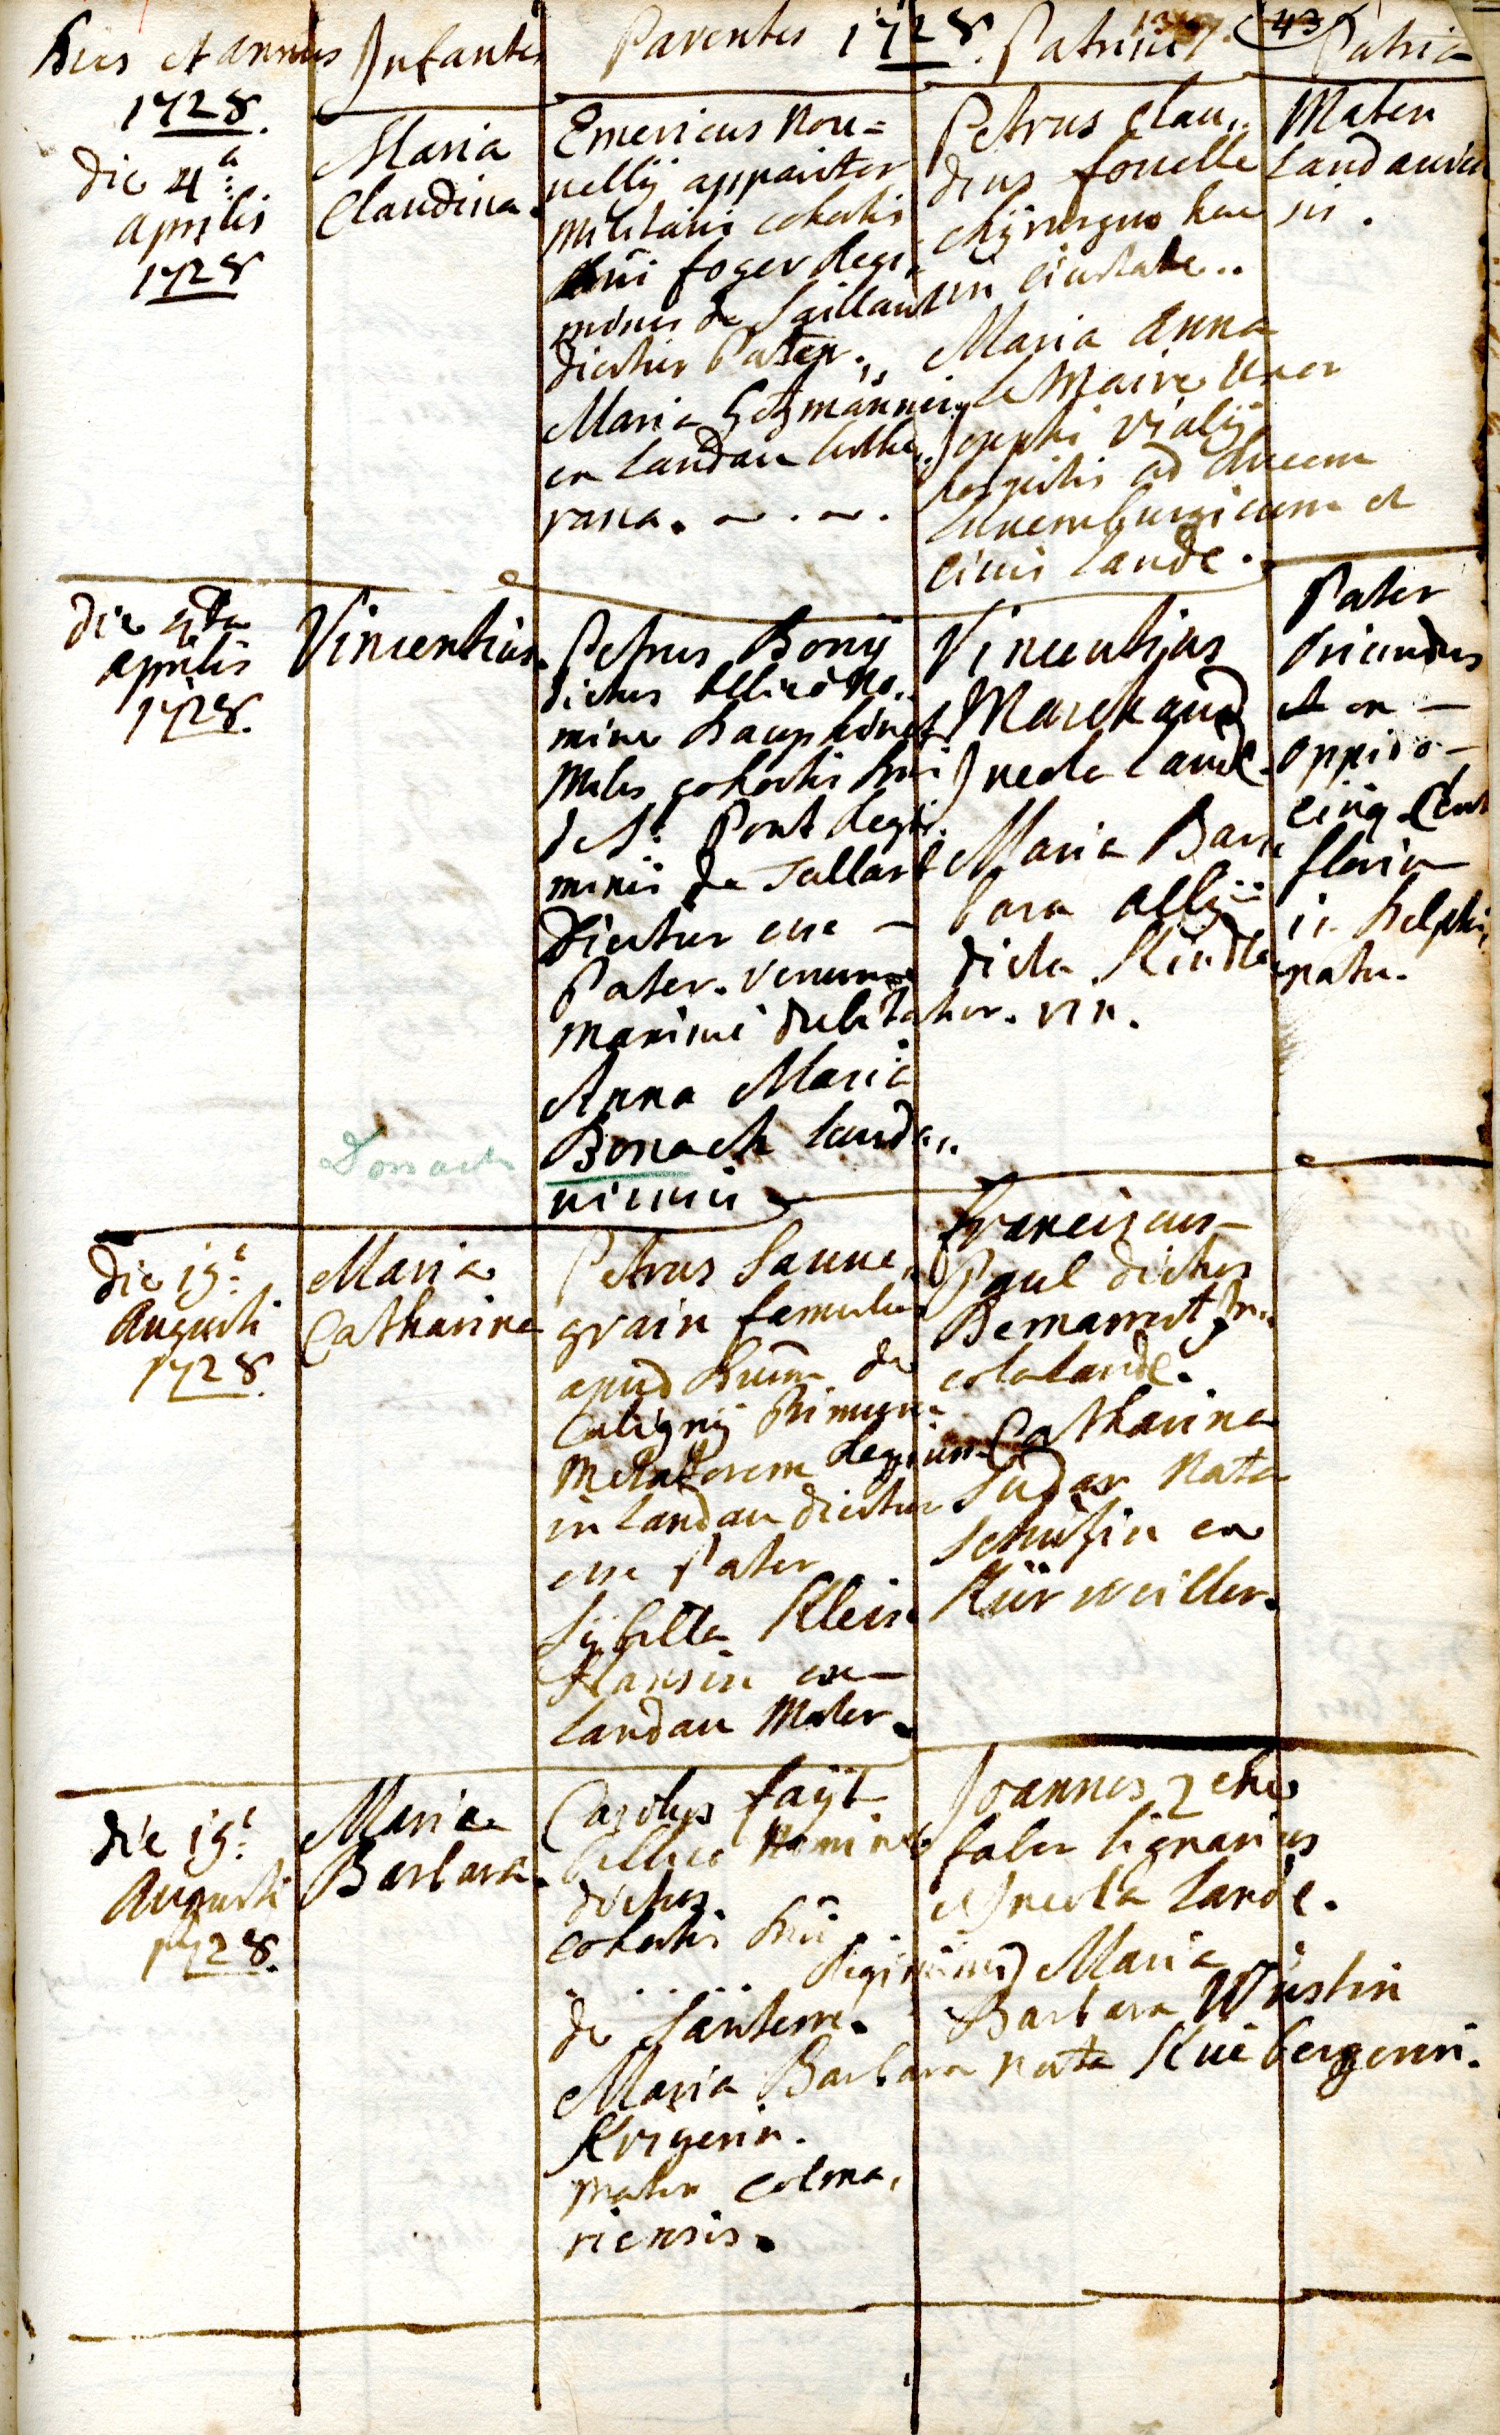 Dies et annus Infantes Parentes 1728. Patrini Patria
43
1728.
die 4a
aprilis
1728
Maria
Claudina.
Emericus Nou=
nellÿ apparitor
militaris cohortis
Dni foger Regi
minis de Saillant
dicitur Pater.,,
Maria Götzmännin
ex Landau luthe,,
rana.
Petrus Clau,,
dius fouelle
chÿrurgus hac
in civitate..
Maria Anna
le Maire uxor
Josephi Vialÿ
hospitis ad ducem
luxemburgicum et
civis Landae.
Mater
Landavien
sis.
die
aprilis
1728.
Vincentius.
Petrus Bonÿ
dictus bellico no,,
mine Dauphiné
Miles cohortis Dni
de St: Pont Regi
minis de Tallart
Dicitur esse
Pater. Verum
maxime dubitatur.
Anna Maria
Bonach Landa,,
viensis
Donach
Vincentius
Marchand
Incola Landae.
Maria Bar
bara
dicta
Pater
oriundus
est ex
oppido
cinq Cent
floria
in Delphi,
natu.
die 19a
Augusti
1728.
Maria
Catharina
Petrus Sauue,,
grain famulus
apud Dnum de
Caligny
Regium
in Landau dicitur
esse Pater
Sÿbilla Klein
Hansin ex
Landau Mater.
Franciscus
Paul dictus
In,,
cola Landae.
Catharina
nata
ex
Kürweiller.
die 19a
Augusti
1728.
Maria
Barbara.
Carolus faÿt
bellico nomine
dictus.
cohortis Dni
. . . . . . Regiminis
de Santerre.
Maria Barbara
Krigerin.
Mater Colma,
riensis.
Joannes Zehe
faber lignarius
et Incola Landae.
Maria
Barbara Wüstin
nata